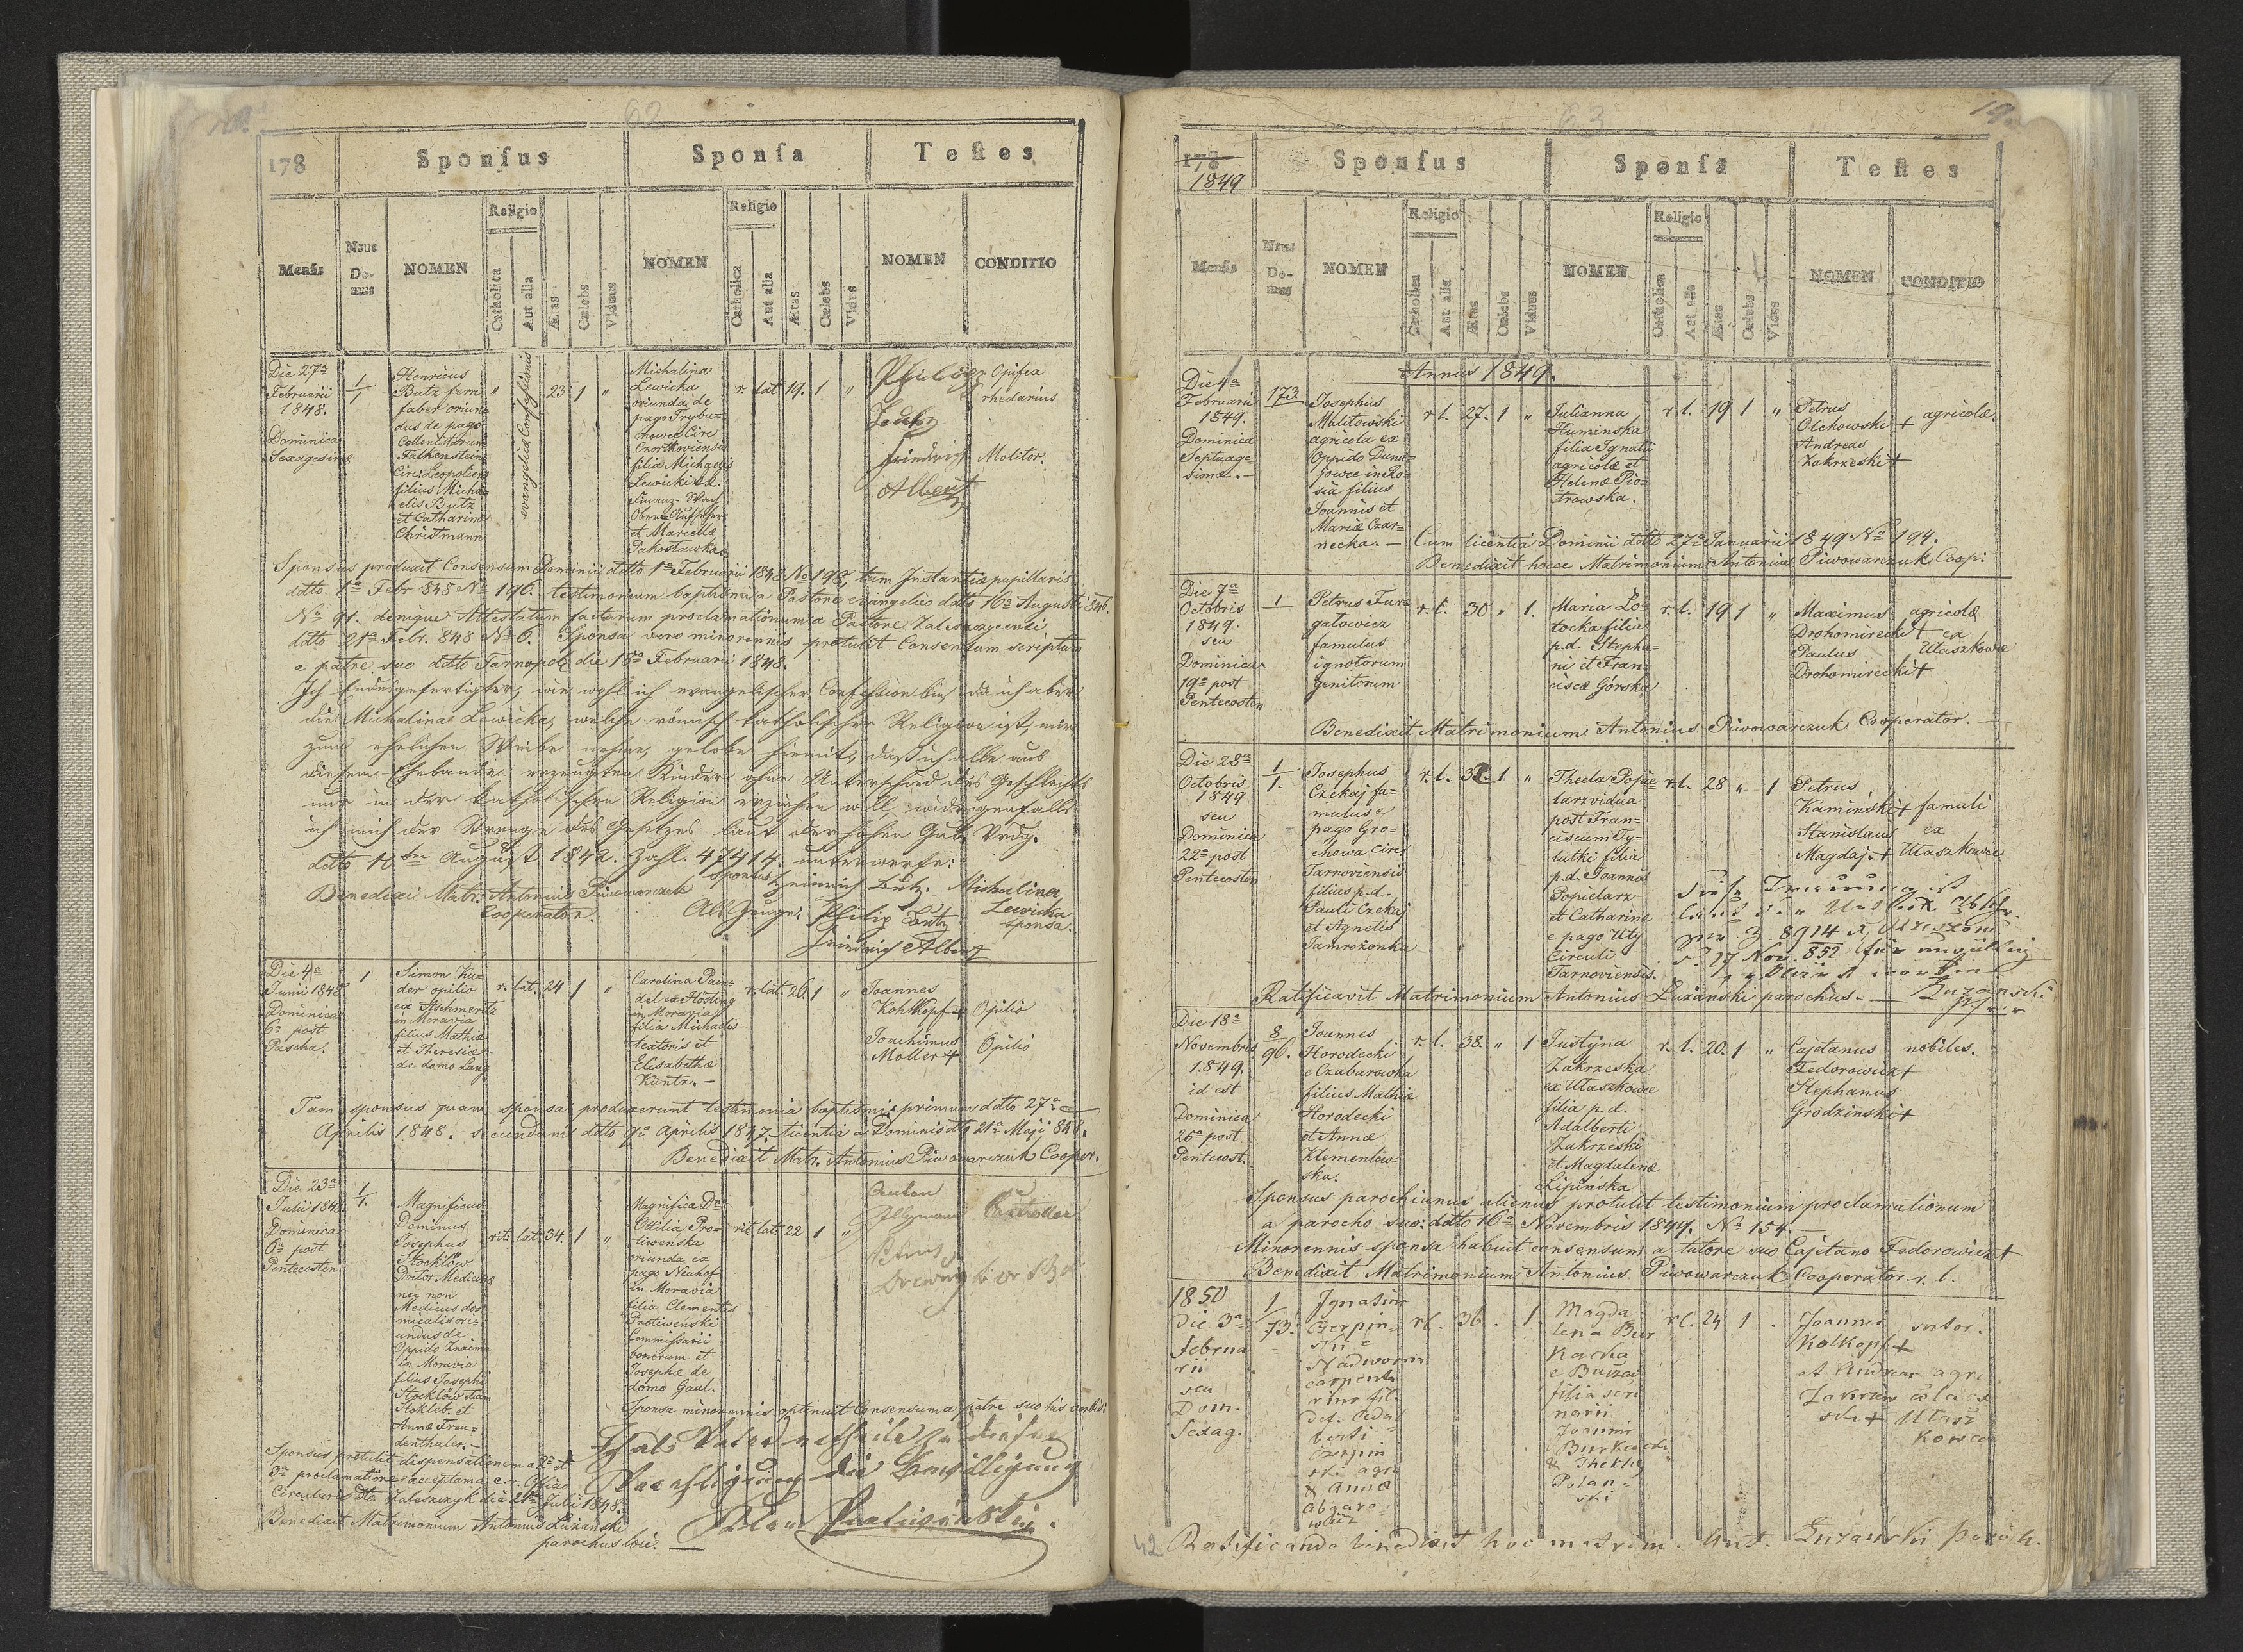 62
178
Sponſus
Sponſa
Teſtes
Religio
Religio
Menſis
Nrus Domus
NOMEN
Catholica
Aut alia
Ætas
Cœlebs
Viduus
NOMEN
Catholica
Aut alia
Ætas
Cœlebs
Vidua
NOMEN
CONDITIO
Die 27ª
Februarii
1848.
Dominica
Sexagesimæ
1/1
Henricus
Butz ferri
faber oriun=
dus de pago
Collonistarum
Falkenstein
Circ: Leopoliens
filius Micha=
elis Butz
et Catharinæ
Christmann
"
evangelica Confessionis
23
1
"
Michalina
Lewicka
oriunda de
pago Trybu=
chowce Circ
Czortkoviensis
filia Michaelis
Lewicki k.k.
Finanz-Wach
Ober-Aufseher
et Marcella
Pakosławska
r. lat
19.
1
"
Philip
Butz
Friedrich
Albert
Opifex
rhedarius
Molitor.
Sponsus produxit Consensum Dominii ddtto 1ª Februarii 1848 Nº 198, tum Instantiæ pupillaris
ddtto 1ª Febr 848 Nº 196. testimonium baptismi a Pastore evangelico ddtto 16ª Augusti 846.
Nº 91. denique Attestatum factarum proclamationum a Pastore Zaleszczycensi
ddtto 21ª Febr. 848 Nº 6. Sponsa vero minorennis protulit Consensum scriptum
a patre suo ddtto Tarnopol die 18ª Februarii 1848.
Ich Endesgefertigter, wie wohl ich evangelischer Confession bin, da ich aber
die Michalina Lewicka, welche römisch katholischer Religion ist, mir
zum ehelichen Weibe nehme, gelobe hiemit, daß ich alle aus
diesem Ehebande erzeugten Kinder ohne Unterschied des Geschlechts
nur in der katholischen Religion erziehen will, widrigenfalls
ich mich der Strenge des Gesetzes laut der hohen Gub. Vrdg.
ddtto 10ten August 1842. Zahl. 47414. unterwerfe:
Benedixi Matr: Antonius Piwowarczuk
Cooperator.
sponsus Heinrich Butz.
Michalina
Lewicka
sponsa.
Als Zeuge: Philip Butz
Friedrich Albert
Die 4ª
Junii 1848
Dominica
6ª post
Pascha.
1
Simon Ku=
der opilio
ex Itschmeritz
in Moravia
filius Mathiæ
et Theresiæ
de domo Lang
r. lat.
24
1
"
Carolina Pain=
del ex Hosting
in Moravia
filia Michaelis
textoris et
Elisabethæ
Kuntz. —
r. lat.
20.
1
"
Joannes
Kohlkopf +
Joachimus
Moller +
Opilio
Opilio
Tam sponsus quam sponsa produxerunt testimonia baptismi: primum ddtto 27ª
Aprilis 1848. secundum ddtto 9ª Aprilis 1847. licentia a Dominio dto 24ª Maji 848.
Benedixit Matr. Antonius Piwowarczuk Cooper.
Die 23ª
Julii 1848.
Dominica
6ª post
Pentecosten
1/1.
Magnificus
Dominus
Josephus
Stöcklöw
Doctor Medicinæ
nec non
Medicus do=
micalis ori=
undus de
Oppido Znaim
in Moravia
filius Josephi
Stöcklöw etiam
Stökleb. et
Annæ Freu=
denthaler. —
rit. lat.
34.
1
"
Magnifica Dna
Ottilia Pro=
tiwenska
oriunda ex
pago Neuhof
in Moravia
filia Clementis
Protiwenski
Commissarii
bonorum et
Josephæ de
domo Gaul.
rit. lat.
22
1
"
Anton
Sponsa minorennis optinuit Consensum a patre suo his verbis:
Ich als Vater ertheile zu dieser
Verehligung die Bewilligung
Sponsus protulit dispensationem a 2ª et
3ª proclamatione acceptam a c. r. Officio
Circulari dto Zaleszczyk die 21ª Julii 1848.
Benedixit Matrimonium Antonius Łuzański
parochus loci. —
63
19.
178
1849
Sponſus
Sponſa
Teſtes
Religio
Religio
Menſis
Nrus Domus
NOMEN
Catholica
Aut alia
Ætas
Cœlebs
Viduus
NOMEN
Catholica
Aut alia
Ætas
Cœlebs
Vidua
NOMEN
CONDITIO
Annus 1849.
Die 4ª
Februarii
1849.
Dominica
Septuage
simæ. —
173.
Josephus
Malitowski
agricola ex
Oppido Duna=
jowce in Ro=
sia filius
Joannis et
Mariæ Czar=
necka. —
r l.
27.
1
"
Julianna
Huminska
filia Ignatii
agricolæ et
Helenæ Pio=
trowska.
r l.
19
1
"
Petrus
Olchowski +
Andreas
Zakrzeski +
agricolæ.
Cum licentia Dominii ddtto 27ª Januarii 1849 Nº 194.
Benedixit hocce Matrimonium Antonius Piwowarczuk Coop:
Die 7ª
Octobris
1849.
seu
Dominica
19ª post
Pentecosten
1
Petrus Fur=
gałowicz
famulus
ignotorum
genitorum
r. l.
30
"
1.
Maria Ło=
tocka filia
p.d. Stepha=
ni et Fran=
ciscæ Górska
r. l.
19
1
"
Maximus
Drohomirecki +
Paulus
Drohomirecki +
agricolæ
ex
Ułaszkowce
Benedixit Matrimonium Antonius Piwowarczuk Cooperator. —
Die 28ª
Octobris
1849
seu
Dominica
22ª post
Pentecosten
1/1.
Josephus
Czekaj fa=
mulus e
pago Gro=
chowa Circ:
Tarnoviensis
filius p.d.
Pauli Czekaj
et Agnetis
Jamrożonka
r. l.
32.
1
"
Thecla Popie
larz vidua
post Fran=
ciscum Ty=
lutki filia
p.d. Joannis
Popielarz
et Catharinæ
e pago Uty
Circuli
Tarnoviensis.
r l.
28
"
1
Petrus
Kaminski +
Stanislaus
Magdaj +
famuli
ex
Ułaszkowce
Diese Trauung ist
8914
17 Nov. 852 für ungültig
erklärt worden
Ratificavit Matrimonium Antonius Łuzański parochus. —
Die 18ª
Novembris
1849.
id est
Dominica
26ª post
Pentecost.
8/96.
Joannes
Horodecki
e Czabarowka
filius Mathiæ
Horodecki
et Annæ
Klementow=
ska.
r. l.
38.
"
1
Justyna
Zakrzeska
ex Ułaszkowce
filia p.d.
Adalberti
Zakrzeski
et Magdalenæ
Lipinska
r. l.
20.
1
"
Cajetanus
Fedorowicz +
Stephanus
Grodzinski +
nobiles.
Sponsus parochianus alienus protulit testimonium proclamationum
a parocho suo: ddtto 16ª Novembris 1849. Nº 154. —
Minorennis sponsa habuit consensum a tutore suo Cajetano Fedorowicz +
Benedixit Matrimonium Antonius Piwowarczuk Cooperator r. l.
1850
Die 3ª
Februa
rii
seu
Dom.
Sexag.
1/73.
Ignatius
Czerpin=
ski
Nadworni
carpenta
rius fil.
def. Adal
berti
Czerpin
ski agri
& Annæ
Abgaro
wicz
rl.
36
.
1.
Magda
lena Bur
kacka
e
filia
Joannis
Burkacki
& Theklæ
Polan
ski
r l.
24
1
.
Joannes
Kolkopf +
et Andreas
Zakrzew
ski +
sutor.
agri
cola ex
Ułasz
kowce
42 Ratificando benedixit hoc matrim. Ant. Łuzański Paroch.